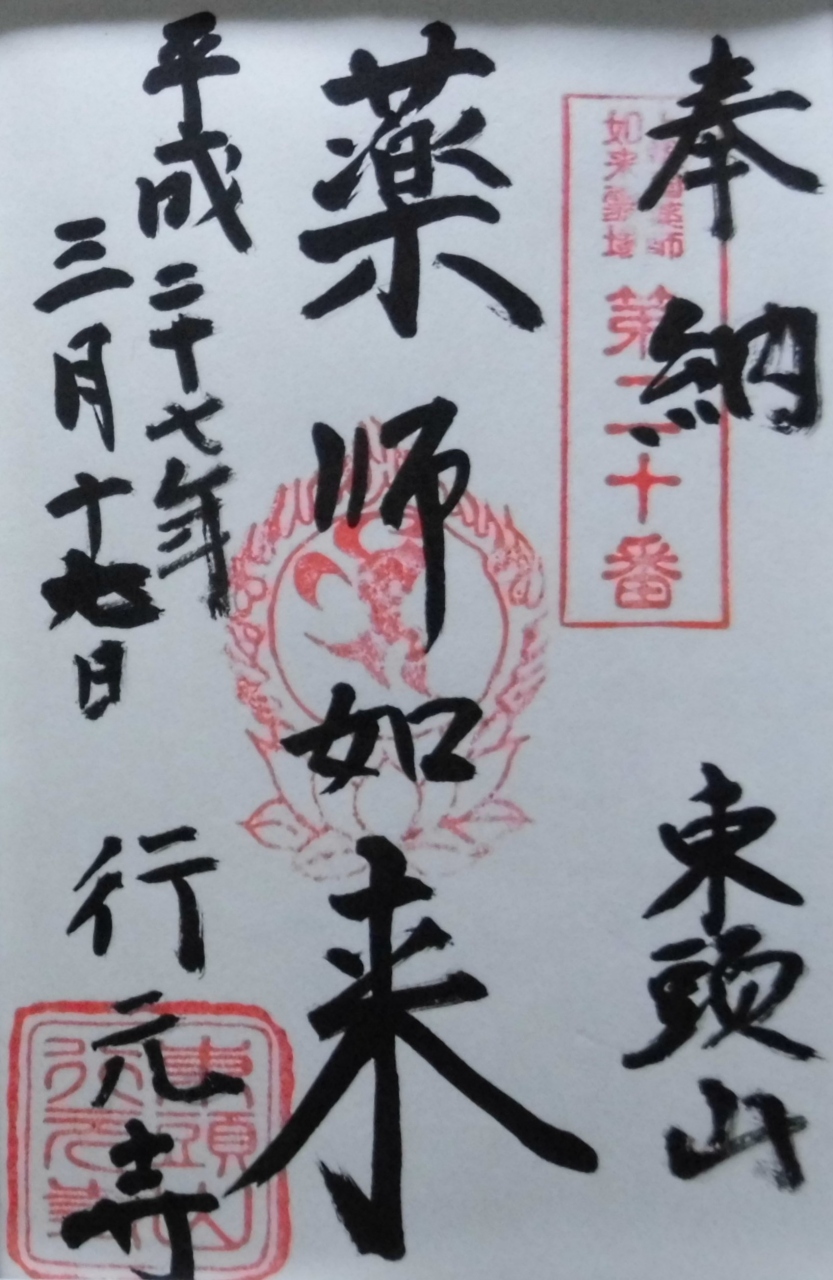 奉納
東頭山
如来霊場
第二十番
薬師如来
平成二十七年
三月十 日
行元寺
東頭山
行元寺